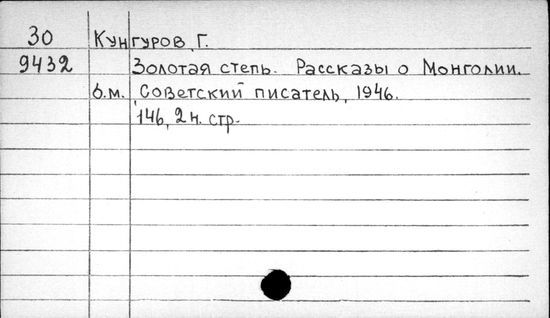 30 Кунгуров, Г.
9432 Золотая степь. Рассказы о Монголии.
б.м., Советский писатель, 1946.
146, 2 н. стр.